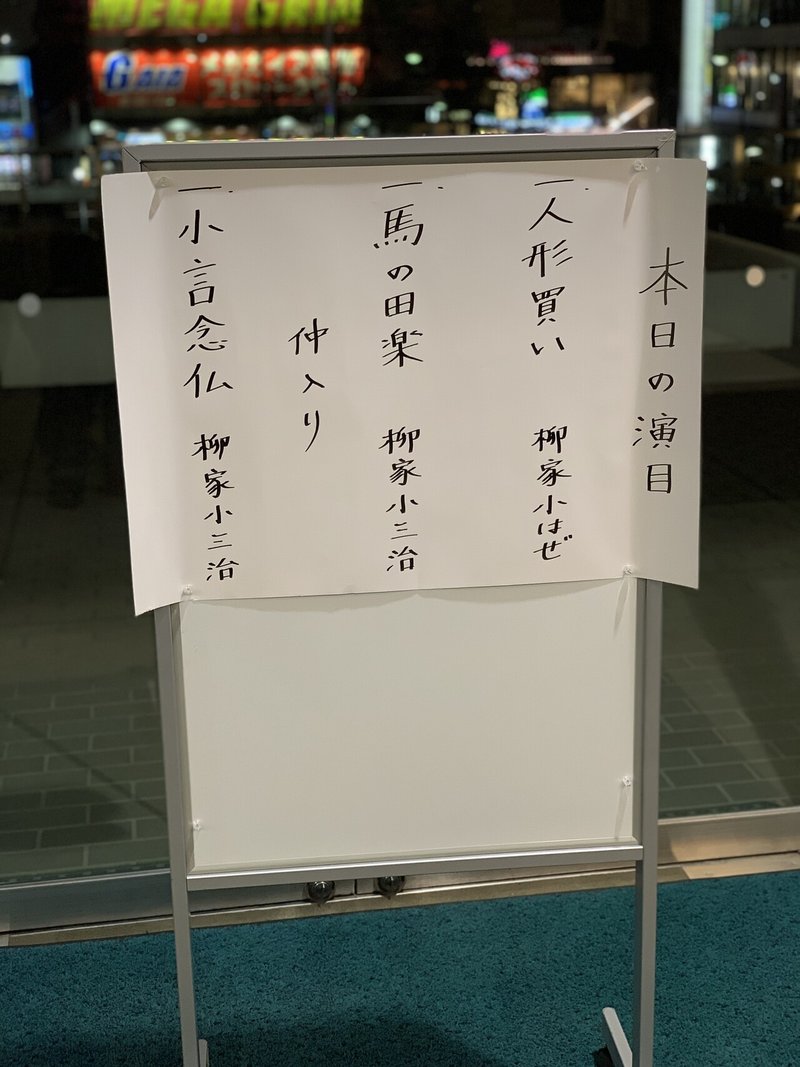 本日の演目
一、人形買い 柳家小はぜ
一、馬の田楽 柳家小三治
仲入り
一、小言念仏 柳家小三治
MEGA GAIA
GAIA